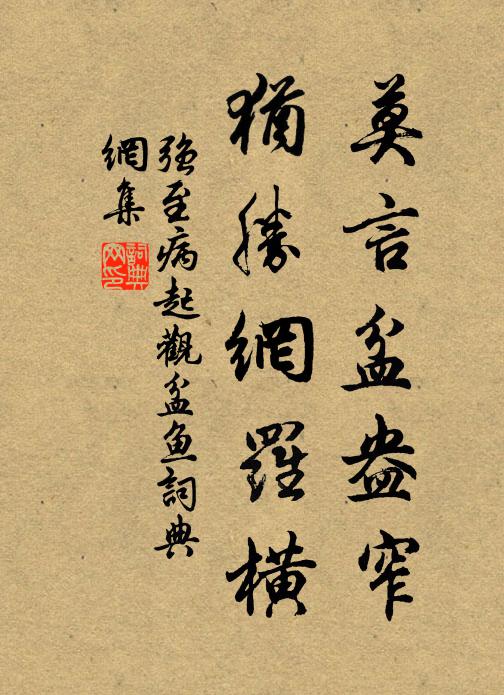 莫言盆盎窄
猶勝網羅橫
強至病起觀盆魚詞典
網集
詞典網印